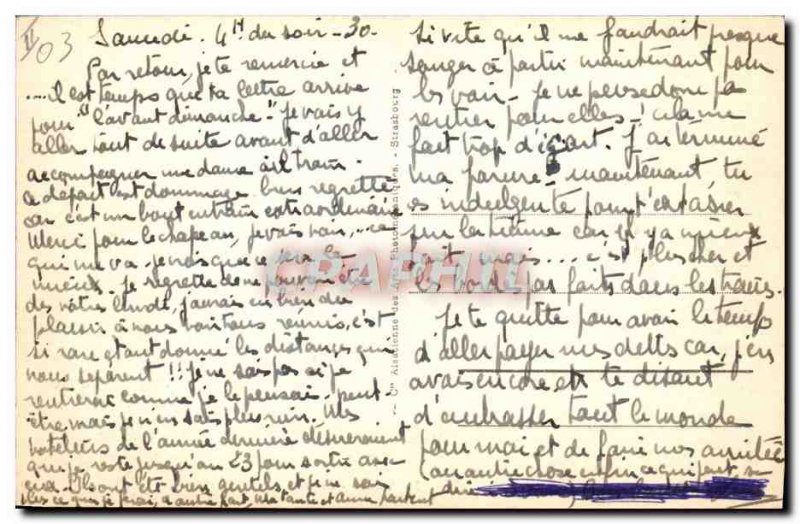 II 03
Samedi. 4H du soir - 30.
Par retour, je te remercie et
....il est temps que ta lettre arrive
pour "l'avant dimanche" - je vais y
aller tout de suite avant d'aller
accompagner une dame au train.
Ce départ est dommage bien regretté
car c'est un bout en train extraordinaire
Merci pour le chapeau, je vais voir... ce
qui me va. je crois que ce sera le
mieux. je regrette de ne pouvoir être
des vôtres lundi, j'aurais eu bien du
plaisir à nous voir tous réunis, c'est
si rare étant donné les distances qui
nous séparent !! je ne sais pas si je
rentierai comme je le pensais, peut
être mais je n'en sais plus rien. Mes
hôteliers de l'année dernière désireraient
que je reste jusqu'au 23 pour sortir avec
eux. Ils ont été bien gentils, et je ne sais
plus ce que je ferai, d'autre part, ma tante et Anna partent
si vite qu'il me faudrait presque
songer à partir maintenant pour
les voir - je ne pense donc pas
rentrer pour elles - cela me
fait trop d'écart. J'ai terminé
ma parure - maintenant tu
es indulgente pour t'extasier
sur la tienne car il y a mieux
fait, mais.... c'est plus cher et
les          pas faits dans les
Je te quitte pour avoir le temps
d'aller payer mes dettes car, j'en
avais encore et te disant
d'embrasser tout le monde
pour moi et de faire mes amitiés
(ou autre chose enfin ce qui peut se
dire
Cie Alsacienne des Arts Photomécaniques. - Strasbourg
CPAPHIL